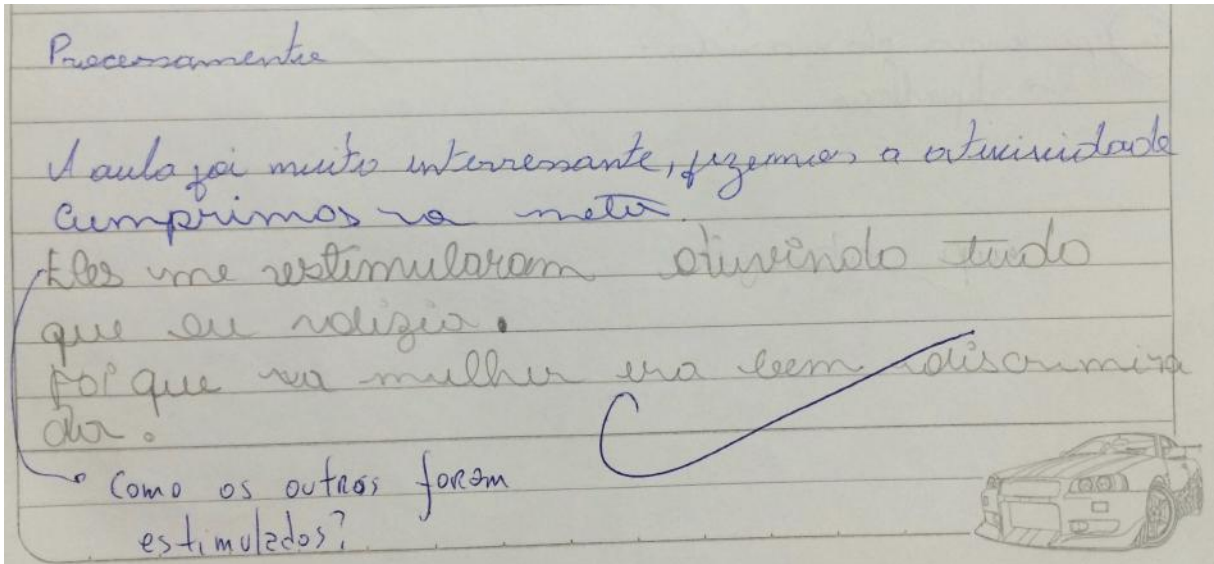 Processamento
A aula foi muito interressante, fizemos a atividade
Cumprimos a meta.
Eles me estimularam ouvindo tudo
que eu dizia.
Porque a mulher era bem discrimina
da.
Como os outros foram
estimulados?